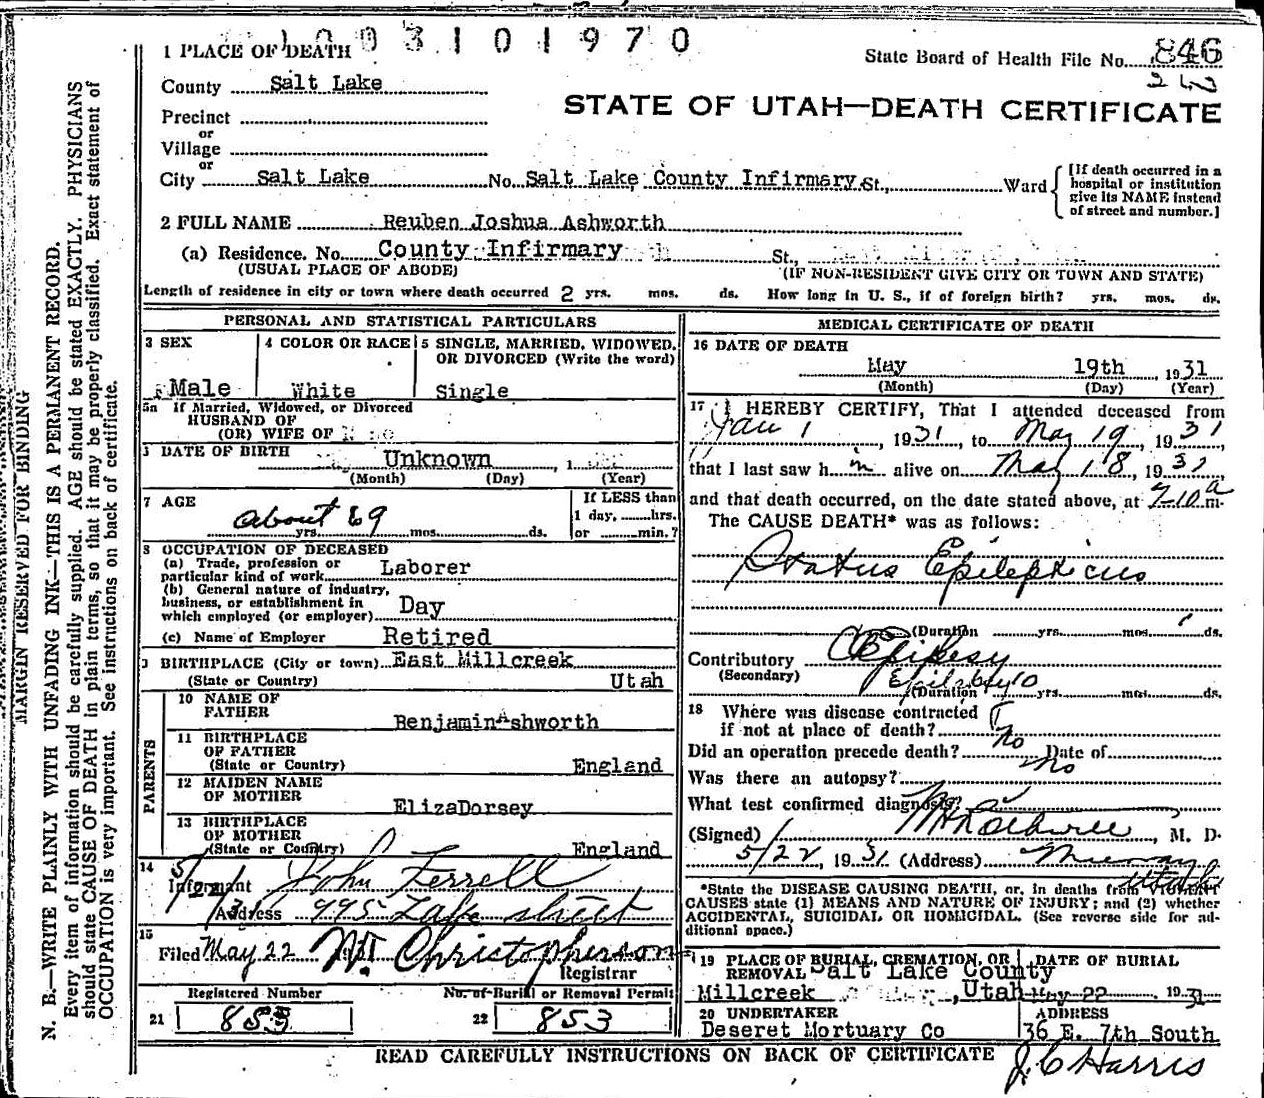 1003101970
1 PLACE OF DEATH
State Board of Health File No. 846
County Salt Lake
STATE OF UTAH—DEATH CERTIFICATE
Precinct
or
Village
or
City Salt Lake No. Salt Lake County Infirmary St., Ward
[If death occurred in a
hospital or institution
give its NAME instead
of street and number.]
2 FULL NAME Reuben Joshua Ashworth
(a) Residence. No. County Infirmary St.,
(USUAL PLACE OF ABODE) (IF NON-RESIDENT GIVE CITY OR TOWN AND STATE)
Length of residence in city or town where death occurred 2 yrs. mos. ds. How long in U. S., if of foreign birth? yrs. mos. ds.
PERSONAL AND STATISTICAL PARTICULARS
3 SEX
Male
4 COLOR OR RACE
White
5 SINGLE, MARRIED, WIDOWED,
OR DIVORCED (Write the word)
Single
5a If Married, Widowed, or Divorced
HUSBAND OF
(OR) WIFE OF
DATE OF BIRTH Unknown , 1
(Month) (Day) (Year)
7 AGE
about 69
yrs. mos. ds.
If LESS than
1 day, hrs.
or min.?
8 OCCUPATION OF DECEASED
(a) Trade, profession or
particular kind of work Laborer
(b) General nature of industry,
business, or establishment in
which employed (or employer) Day
(c) Name of Employer Retired
BIRTHPLACE (City or town) East Millcreek
(State or Country) Utah
PARENTS
10 NAME OF
FATHER Benjamin Ashworth
11 BIRTHPLACE
OF FATHER
(State or Country) England
12 MAIDEN NAME
OF MOTHER ElizaDorsey
13 BIRTHPLACE
OF MOTHER
(State or Country) England
14 5/22/31
Informant John Ferrell
Address 995 Lake street
15
Filed May 22 1931 W. Christopherson
Registrar
Registered Number
21 853
No. of Burial or Removal Permit
22 853
MEDICAL CERTIFICATE OF DEATH
16 DATE OF DEATH
May 19th 1931
(Month) (Day) (Year)
17 I HEREBY CERTIFY, That I attended deceased from
Jan 1, 1931, to May 19, 1931
that I last saw him alive on May 18, 1931
and that death occurred, on the date stated above, at 7-10 a m.
The CAUSE DEATH* was as follows:
Status Epilepticus
(Duration yrs. mos. 1 ds.
Contributory Epilepsy
(Secondary) Epilepsy
(Duration 10 yrs. mos. ds.
18 Where was disease contracted
if not at place of death?
Did an operation precede death? No Date of
Was there an autopsy? No
What test confirmed diagnosis?
(Signed) , M. D.
5/22, 1931 (Address) Murray Utah
*State the DISEASE CAUSING DEATH, or, in deaths from VIOLENT
CAUSES state (1) MEANS AND NATURE OF INJURY; and (2) whether
ACCIDENTAL, SUICIDAL OR HOMICIDAL. (See reverse side for ad-
ditional space.)
19 PLACE OF BURIAL, CREMATION, OR
REMOVAL Salt Lake County
Millcreek , Utah
DATE OF BURIAL
May 22 1931
20 UNDERTAKER
Deseret Mortuary Co
ADDRESS
36 E. 7th South
READ CAREFULLY INSTRUCTIONS ON BACK OF CERTIFICATE
J. C. Harris
MARGIN RESERVED FOR BINDING
N. B.—WRITE PLAINLY WITH UNFADING INK—THIS IS A PERMANENT RECORD.
Every item of information should be carefully supplied. AGE should be stated EXACTLY. PHYSICIANS
should state CAUSE OF DEATH in plain terms, so that it may be properly classified. Exact statement of
OCCUPATION is very important. See instructions on back of certificate.